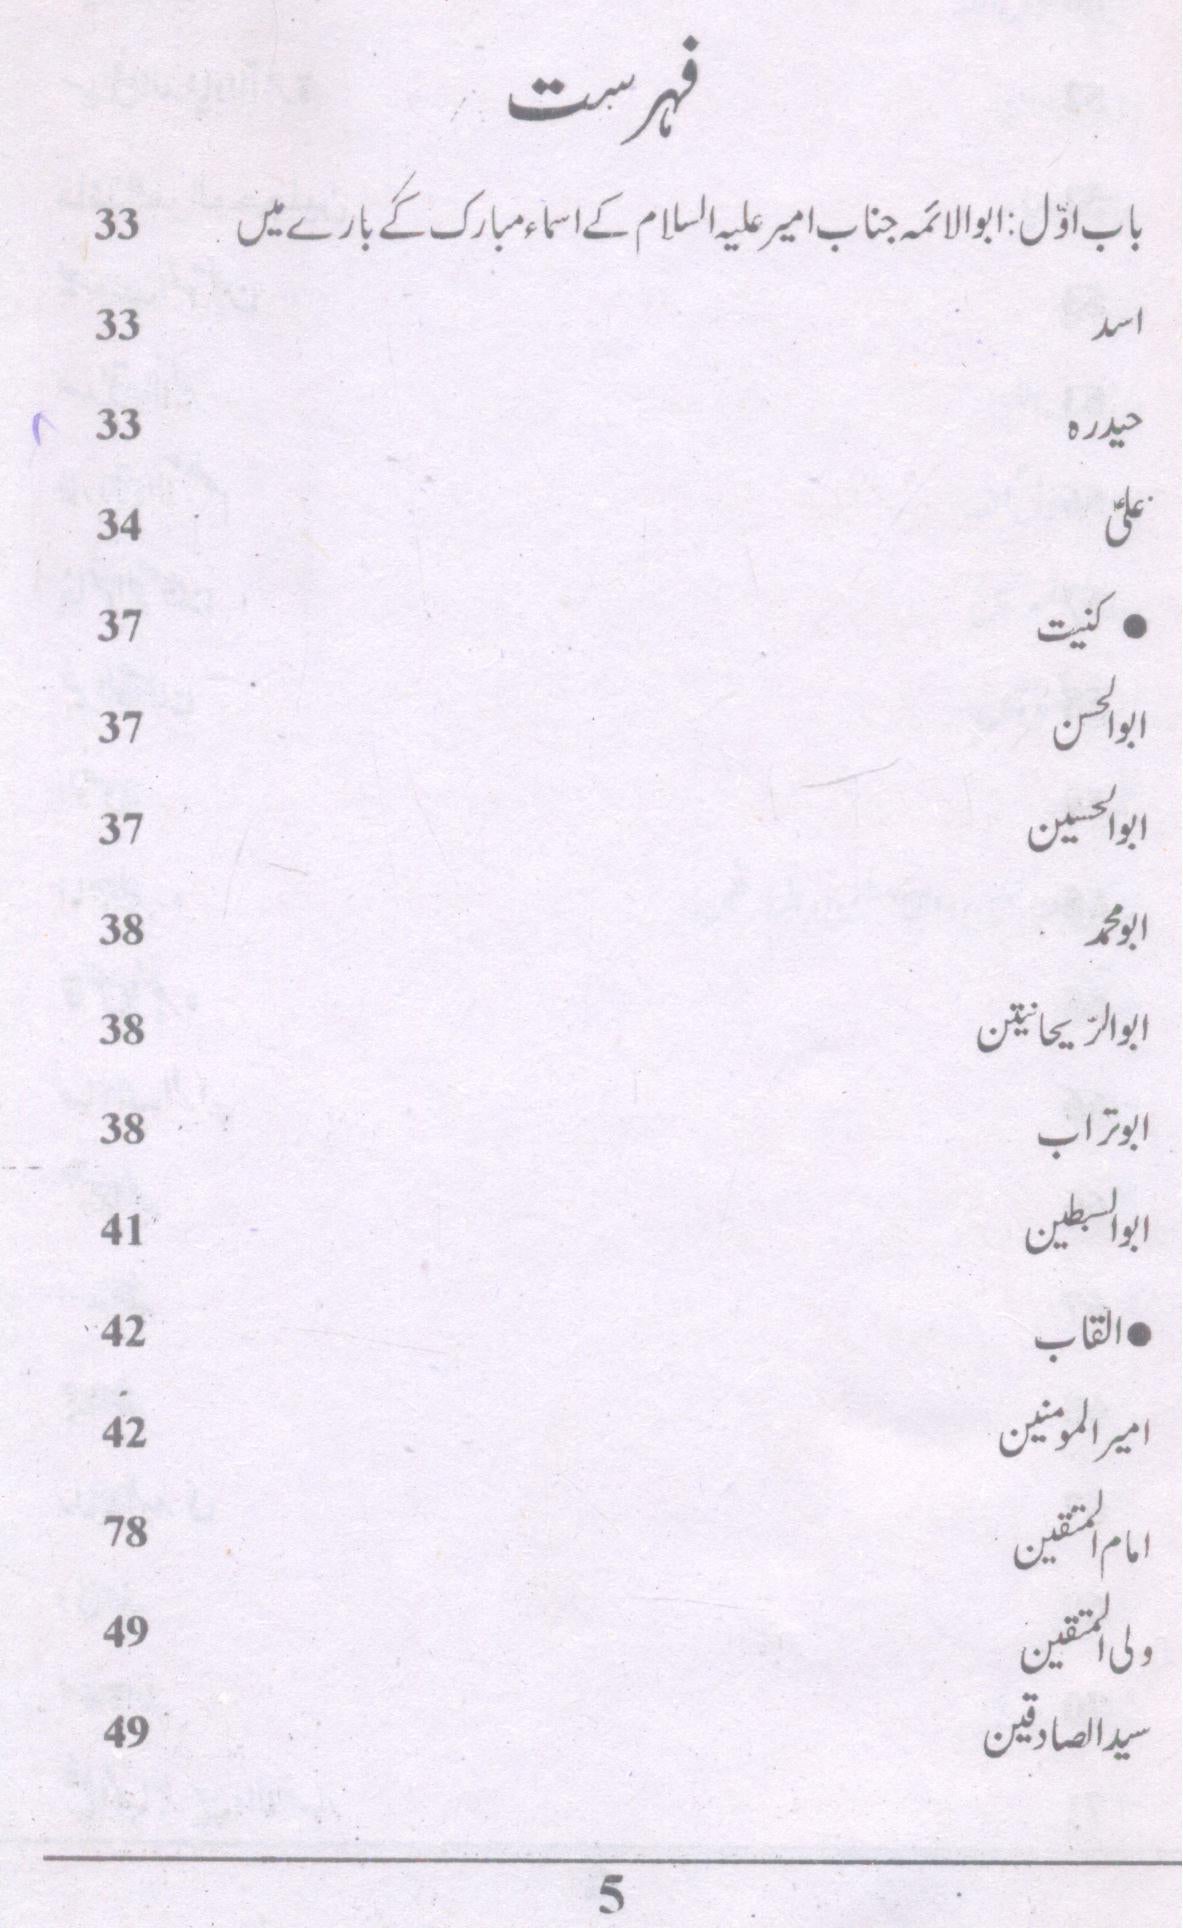 فہرست
باب اوّل: ابوالائمہ جناب امیر علیہ السلام کے اسماء مبارک گے بارے میں 33
اسد 33
حیدرہ 33
علیؑ 34
● کنیت 37
ابوالحسن 37
ابوالحسین 37
ابو محمد 38
ابوالرّیحانیتن 38
ابوتراب 38
ابوالسبطین 41
● القاب 42
امیرالمومنین 42
امام المتقین 78
ولی المتقین 49
سیدالصادقین 49
5